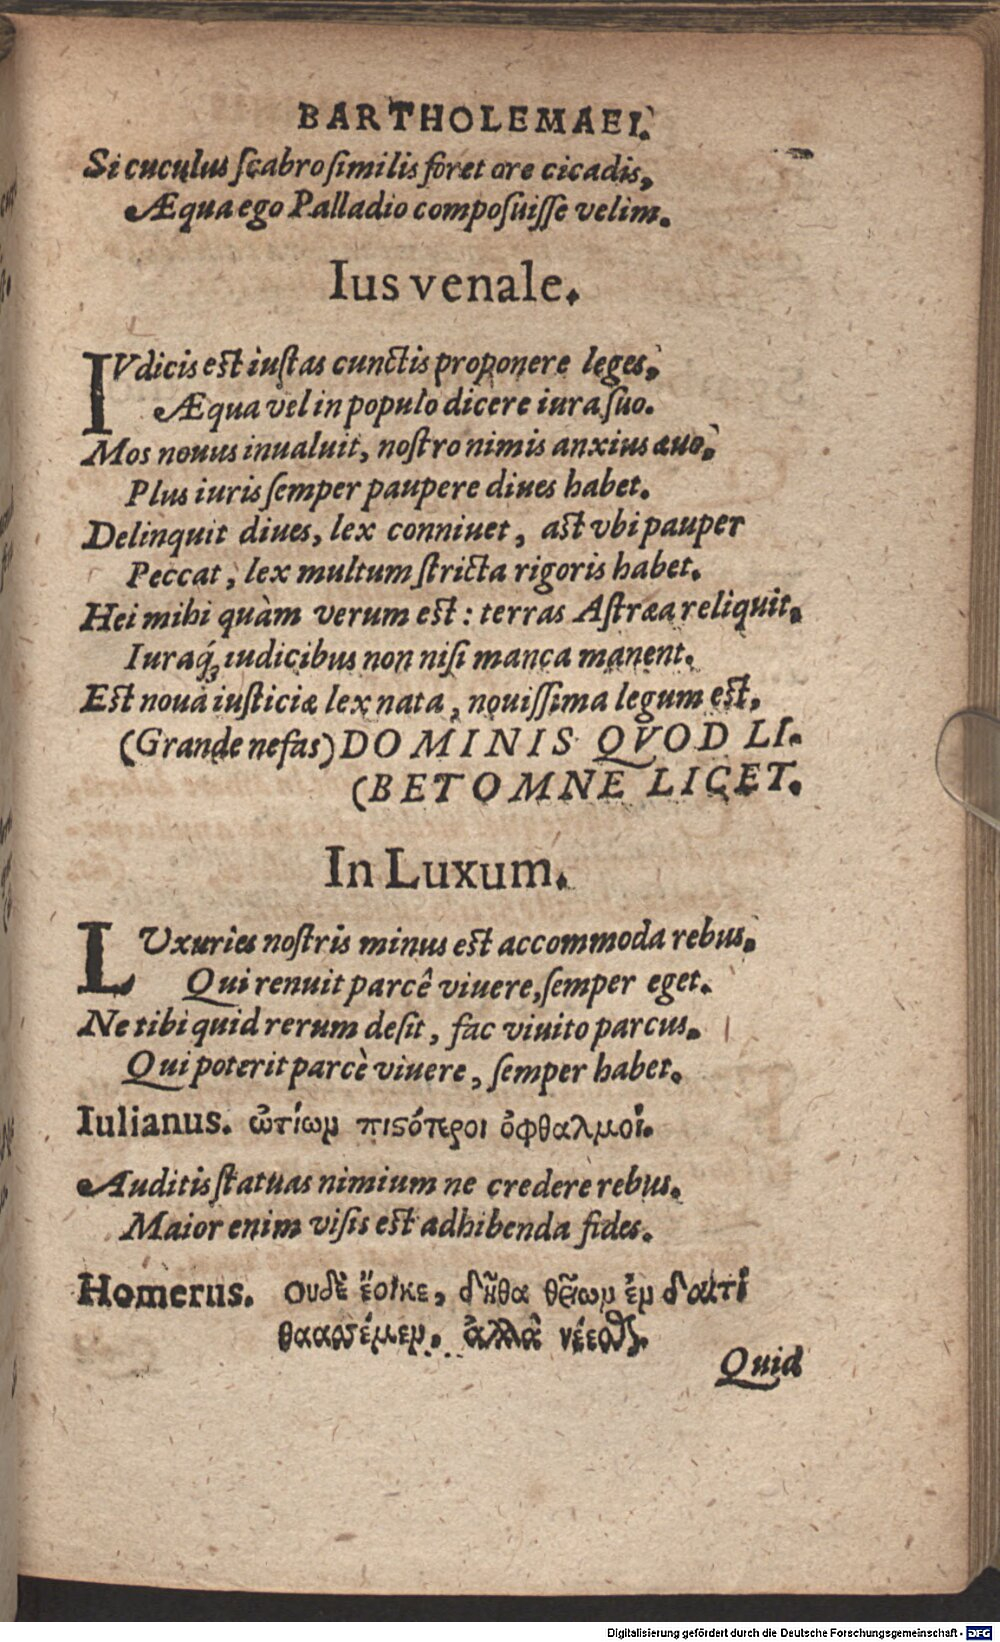 BARTHOLEMAEI.
Si cuculus ſcabro similis foret ore cicadis,
Æqua ego Palladio compoſuiſſe velim.
Ius venale.
IVdicis est iuſtas cunctis proponere leges,
Æqua vel in populo dicere iura ſuo.
Mos nouus inualuit, noſtro nimis anxius æuo,
Plus iuris ſemper paupere diues habet.
Delinquit diues, lex conniuet, ast vbi pauper
Peccat, lex multum ſtricta rigoris habet.
Hei mihi quàm verum est: terras Aſtræa reliquit,
Iuraq́; iudicibus non niſi manca manent.
Est noua iuſticiæ lex nata, nouiſſima legum est,
(Grande nefas) DOMINIS QVOD LI-
(BET OMNE LICET.
In Luxum.
LVxuries noſtris minus est accommoda rebus,
Qui renuit parcê viuere, ſemper eget.
Ne tibi quid rerum deſit, fac viuito parcus.
Qui poterit parcè viuere, ſemper habet.
Iulianus. ὠτίωμ πιϛότεροι ὀφθαλμοί.
Auditis ſtatuas nimium ne credere rebus,
Maior enim viſis est adhibenda fides.
Homerus. Ουδὲ ἔοικε, δῆθα θεῶμ ἐμ δαιτὶ
ἀλλὰ
Quid
Digitalisierung gefördert durch die Deutsche Forschungsgemeinschaft - DFG